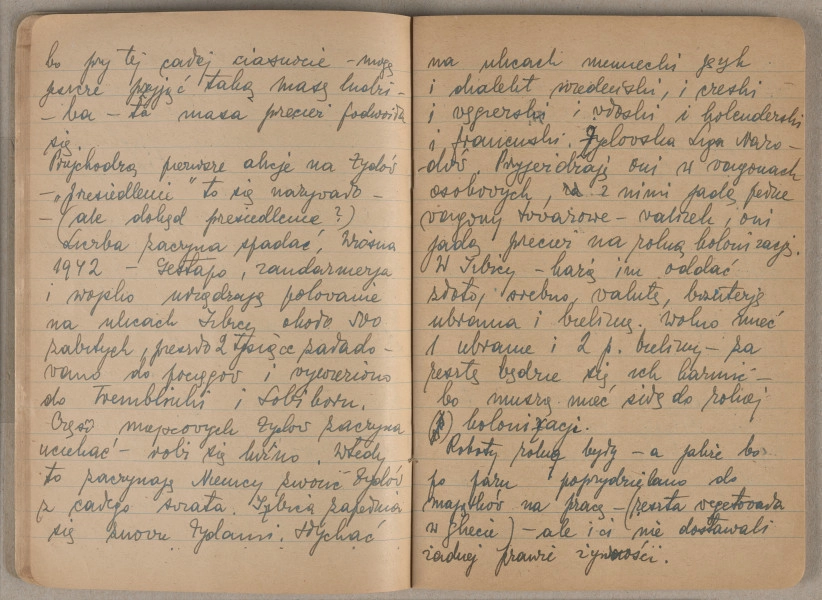 bo przy tej całej ciasnocie – mogą
jeszcze przyjąć taką masę ludzi –
– ba – ta masa przecież podwoiła
się.
Przychodzą pierwsze akcje na Żydów
– „Przesiedlenie" to się nazywało –
– (ale dokąd przesiedlenie?)
Liczba zaczyna spadać, Wiosna
1942 – Gestapo, żandarmerja
i wojsko urządzają polowanie
na ulicach Izbicy około 500
zabitych, przeszło 2 tysiące załado-
wano do pociągów i wywieziono
do Tremblinki i Sobiboru.
Część miejscowych Żydów zaczyna
uciekać – robi się luźno. Wtedy
to zaczynają Niemcy zwozić Żydów
z całego świata. Izbica zapełnia
się znowu Żydami. Słychać
na ulicach niemiecki język
i dialekt wiedeński, i czeski –
i węgierski i włoski i holenderski
i francuski. Żydowska Liga Naro-
dów. Przyjeżdżają oni w wagonach
osobowych, z nimi jadą pełne
wagony towarowe – walizek, oni
jadą przecież na rolną kolonizację.
W Izbicy – każą im oddać
złoto, srebro, walutę, biżuterję
ubrania i bieliznę. Wolno mieć
1 ubranie i 2 p. bielizny – za
resztę będzie się ich karmić –
bo muszą mieć siłę do rolnej
kolonizacji.
Roboty rolne były – a jakże bo
po paru poprzydzielano do
majątków na pracę – (reszta wegetowała
w Ghecie) – ale i ci nie dostawali
żadnej prawie żywności.